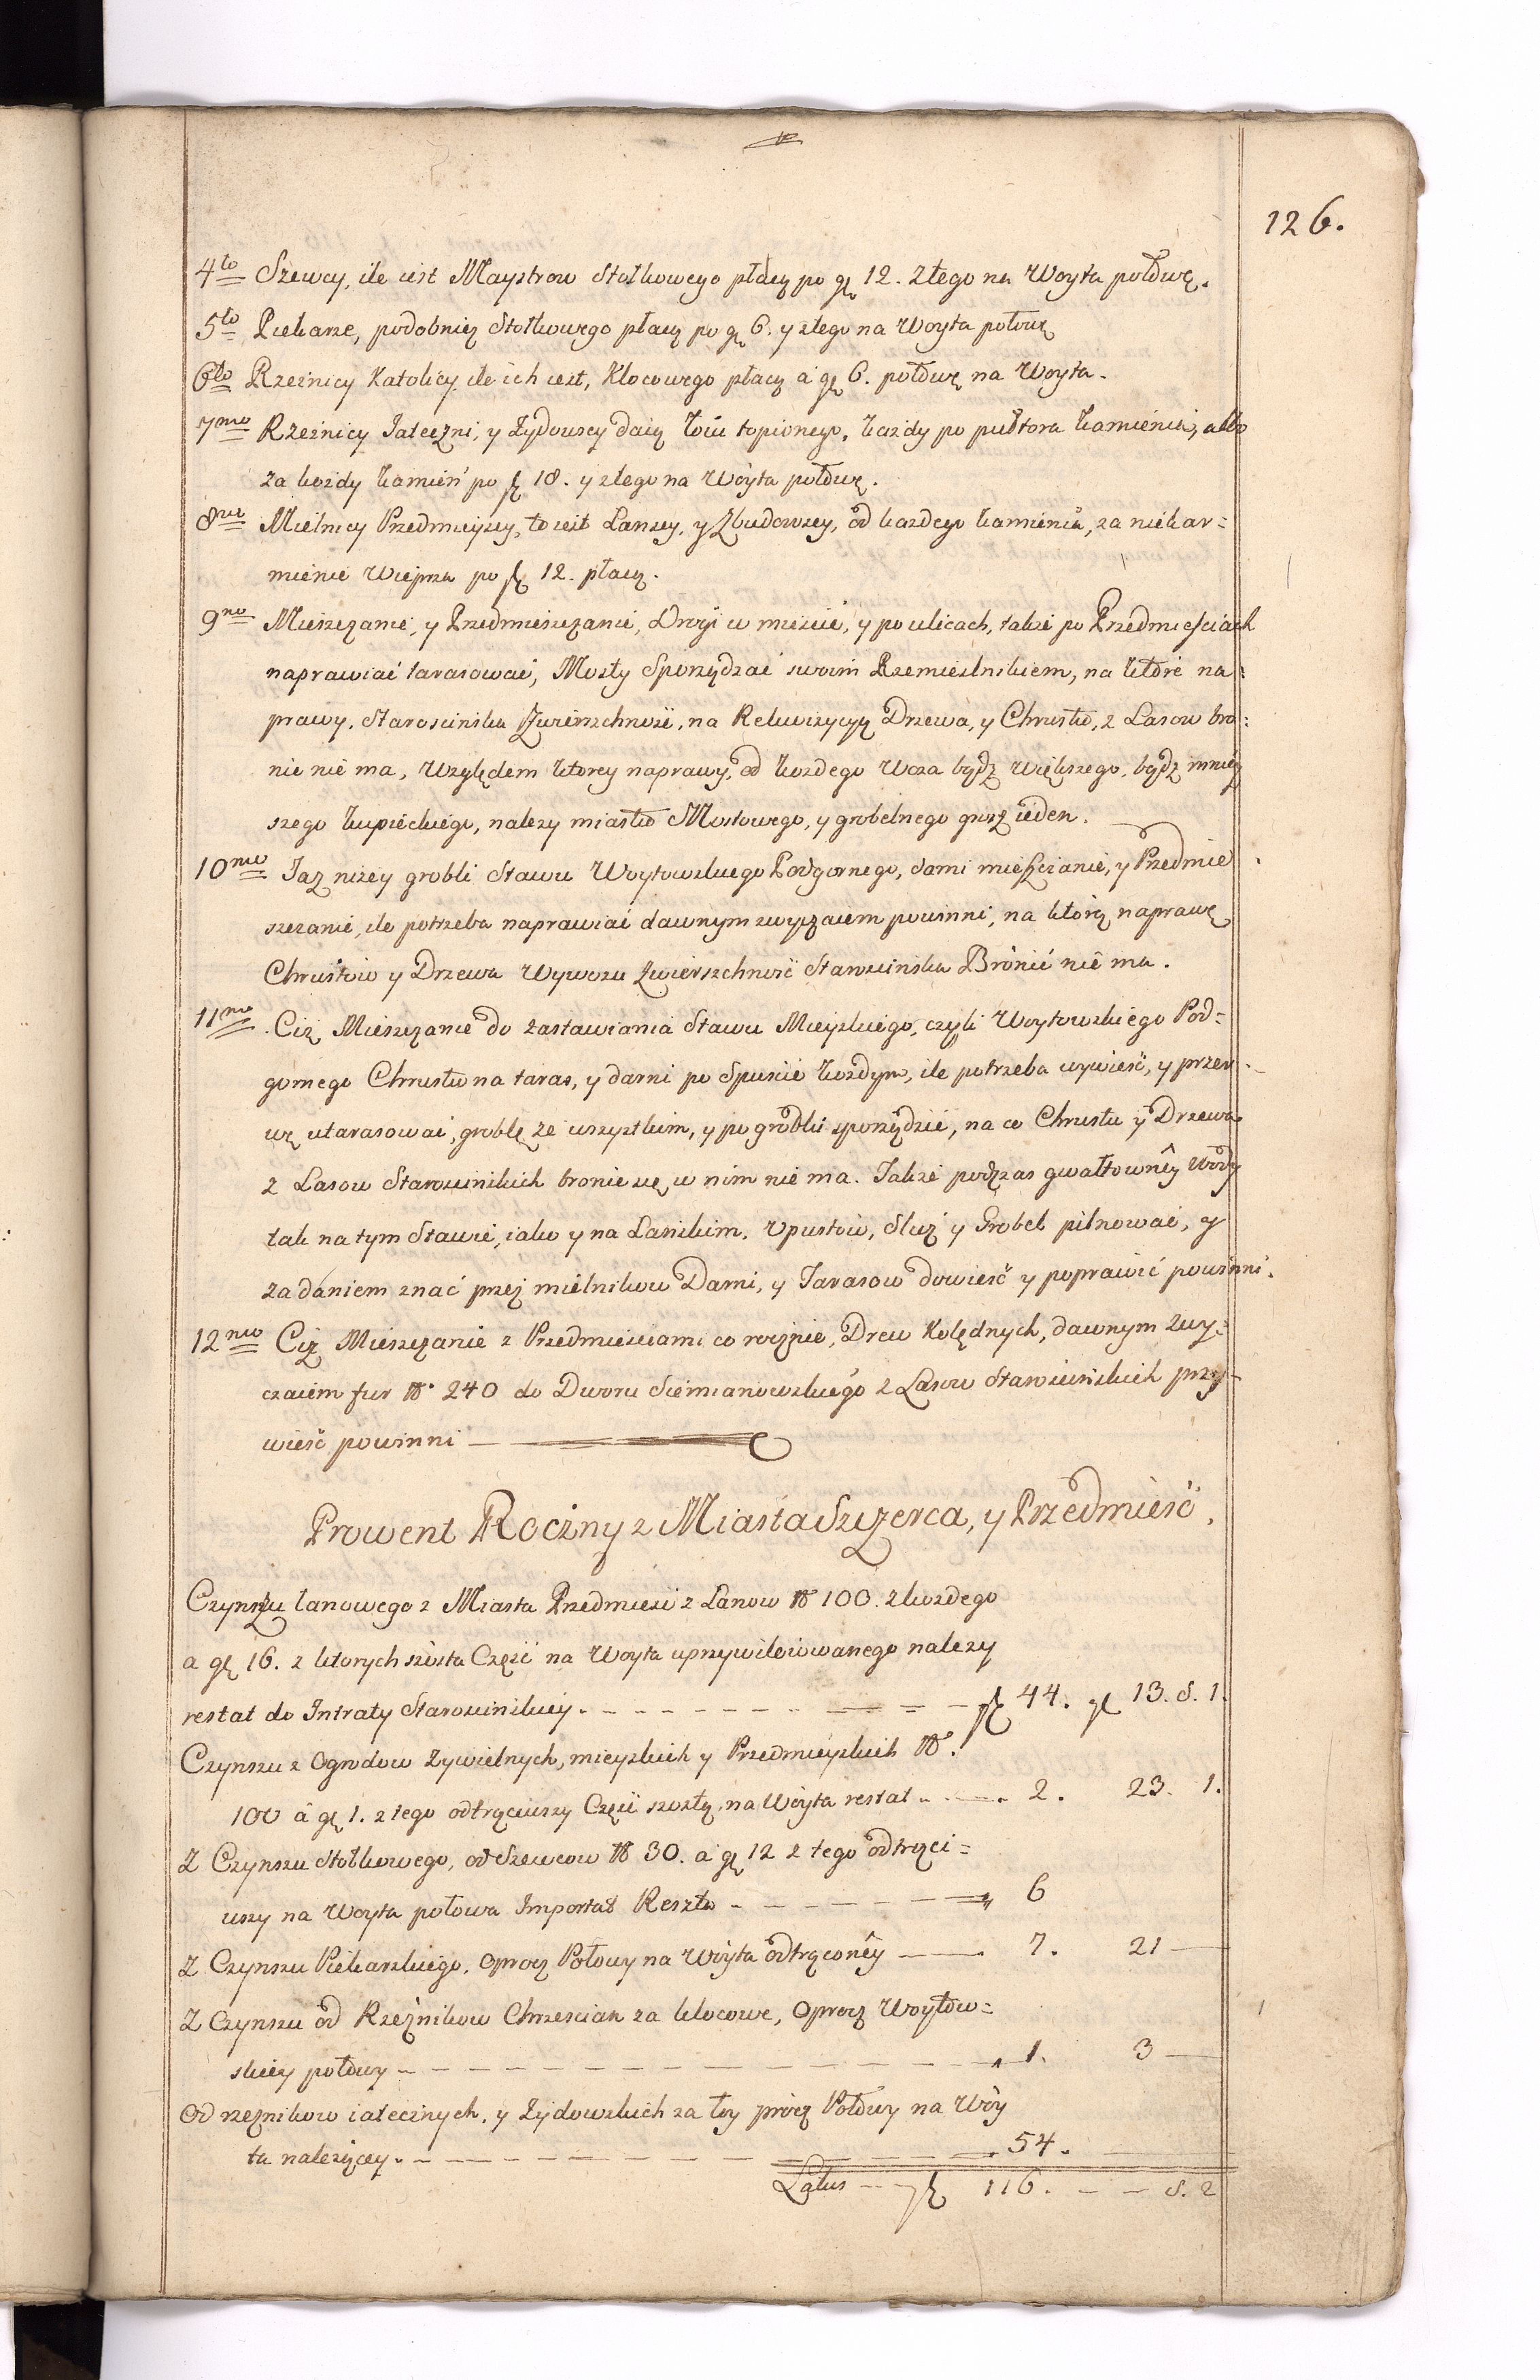 126.
4to Szewcy, ile iest Maystrow Stołkowego płacą po gr 12. z tego na Woyta połowę.
5to Piekarze, podobnież Stołkowego płacą po gr 6. y z tego na Woyta połowę
6to Rzeznicy Katolicy, ile ich iest, Klocowego płacą a gr 6. połowę na Woyta.
7mo Rzeznicy Jateczni, y Zydowscy daią łoiu topionego, kazdy po pułtora kamienia, albo
za kozdy kamień po zł 18. y z tego na Woyta połowę.
8vo Mielnicy Przedmieyscy, to iest Lanscy, y Zbudowscy, od kazdego kamienia, za niekar=
mienie Wieprza po zł 12. płacą.
9no Mieszczanie, y Przedmieszczanie, Drogi w miescie, y po ulicach, także po Przedmieściach
naprawiać tarasować, Mosty Sporządzać swoim Rzemieslnikiem, na ktore na=
prawy, Starościnska Zwierzchność, na Rekwizycyą Drzewa, y Chrustu, z Lasow bro=
nić nie ma, Względem ktorey naprawy, od kozdego Woza bądz większego, bądz mniey
szego kupieckiego, nalezy miastu Mostowego, y grobelnego grosz ieden.
10mo Jaz nizey grobli Stawu Woytowskiego Podgornego, sami mieszczanie, y Przedmie
szczanie, ile potrzeba naprawiać dawnym zwyczaiem powinni, na którą naprawę
Chrustow y Drzewa Wywozu Zwierszchność Starościnska Bronić nie ma.
11mo Ciż Mieszczanie do zastawiania Stawu Mieyskiego, czyli Woytowskiego Pod=
gornego Chrustu na taras, y darni po Spuscie kozdym, ile potrzeba wywieść, y przer
wę utarasować, groblę ze wszystkim, y po grobli sporządzić, na co Chrustu y Drzewa
z Lasow Starościnskich bronic się w nim nie ma. Takze podczas gwałtowney Wody
tak na tym Stawie, iako y na Lanskim, Upustow, Sluz y Grobel pilnować, y
za daniem znać przez mielnikow Darni, y Tarasow dowieść y poprawić powinni.
12mo Ciż Mieszczanie z Przedmieściami co rocznie, Drew Kolędnych, dawnym Zwy=
czaiem fur No 240 do Dworu Siemianowskiego z Lasow Starościnskich przy=
wieść powinni
Prowent Roczny z Miasta Szczerca, y Przedmieść.
Czynszu lanowego z Miasta Przedmieść z Lanow No 100. z kozdego
a gr 16. z ktorych szosta Część na Woyta uprzywileiowanego nalezy
restat do Intraty Starościnskiey. zł 44. gr 13. S. 1.
Czynszu z Ogrodow Zywielnych, mieyskich y Przedmieyskich No.
100 a gr 1. z tego odtrąciwszy Część szostą, na Woyta restat 2. 23. 1.
Z Czynszu Stołkowego, od Szewcow No 30. a gr 12 z tego odtrąci=
wszy na Woyta połowa Importat Reszta 6
Z Czynszu Piekarskiego, oprocz Połowy na Woyta odtrąconey 7. 21
Z Czynszu od Rzeznikow Chrzescian za klocowe, Oprocz Woytow=
skiey połowy 1. 3
Od rzeznikow iatecznych, y Zydowskich za łoy procz Połowy na Woy
ta nalezącey. 54.
Latus zł 116. S. 2